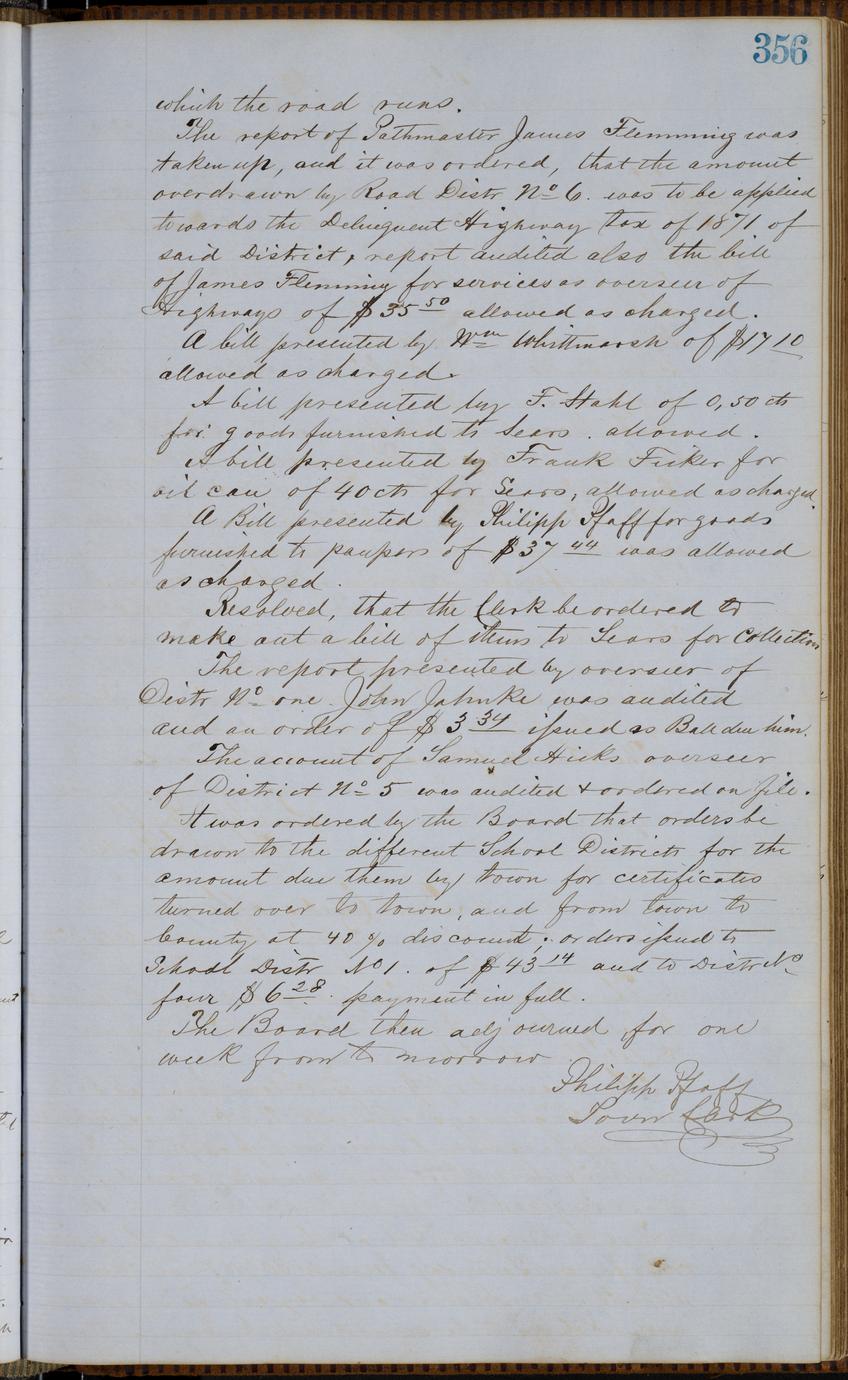 356
which the road runs.
The report of Pathmaster James Flemming was
taken up, and it was ordered, that the amount
overdrawn by Road Distr No 6. was to be applied
towards the Delinquent Highway tax of 1871 of
said District, report audited also the bill
of James Flemming for services as overseer of
Highways of $35 50 allowed as charged.
A bill presented by Wm Whittmarsh of $17 10
allowed as charged.
A bill presented by F. Stahl of 0,50 cts
for goods furnished to Sears. allowed.
A bill presented by Frank Ficker for
oil can of 40 cts for Sears, allowed as charged.
A Bill presented by Philipp Pfaff for goods
furnished to paupers of $37 44 was allowed
as charged.
Resolved, that the Clerk be ordered to
make out a bill of items to Sears for Collection
The report presented by overseer of
Distr No one John Jahnke was audited
and an order of $3 34 issued as Ball due him.
The account of Samuel Hicks overseer
of District No 5 was audited & ordered on file.
It was ordered by the Board that orders be
drawn to the different School Districts for the
amount due them by town for certificates
turned over to town, and from town to
County at 40 % discount; orders issued to
School Distr No 1. of $43 14 and to Distr No
four $6 28 payment in full.
The Board then adjourned for one
week from to morrow
Philipp Pfaff
Town Clerk